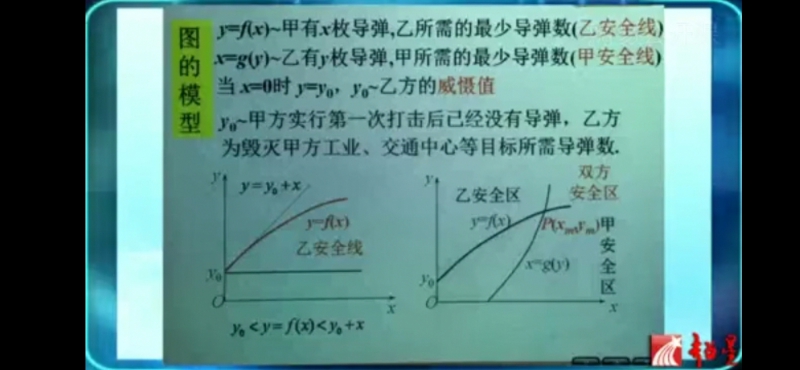 图的模型
y=f(x)~甲有x枚导弹,乙所需的最少导弹数(乙安全线)
x=g(y)~乙有y枚导弹,甲所需的最少导弹数(甲安全线)
当 x=0时 y=y₀，y₀~乙方的威慑值
y₀~甲方实行第一次打击后已经没有导弹，乙方
为毁灭甲方工业、交通中心等目标所需导弹数.
y
y=y₀+x
y=f(x)
乙安全线
y₀
O
x
y₀<y=f(x)<y₀+x
y
乙安全区
双方
安全区
y=f(x)
P(xₘ,yₘ)
甲安全区
x=g(y)
y₀
O
x